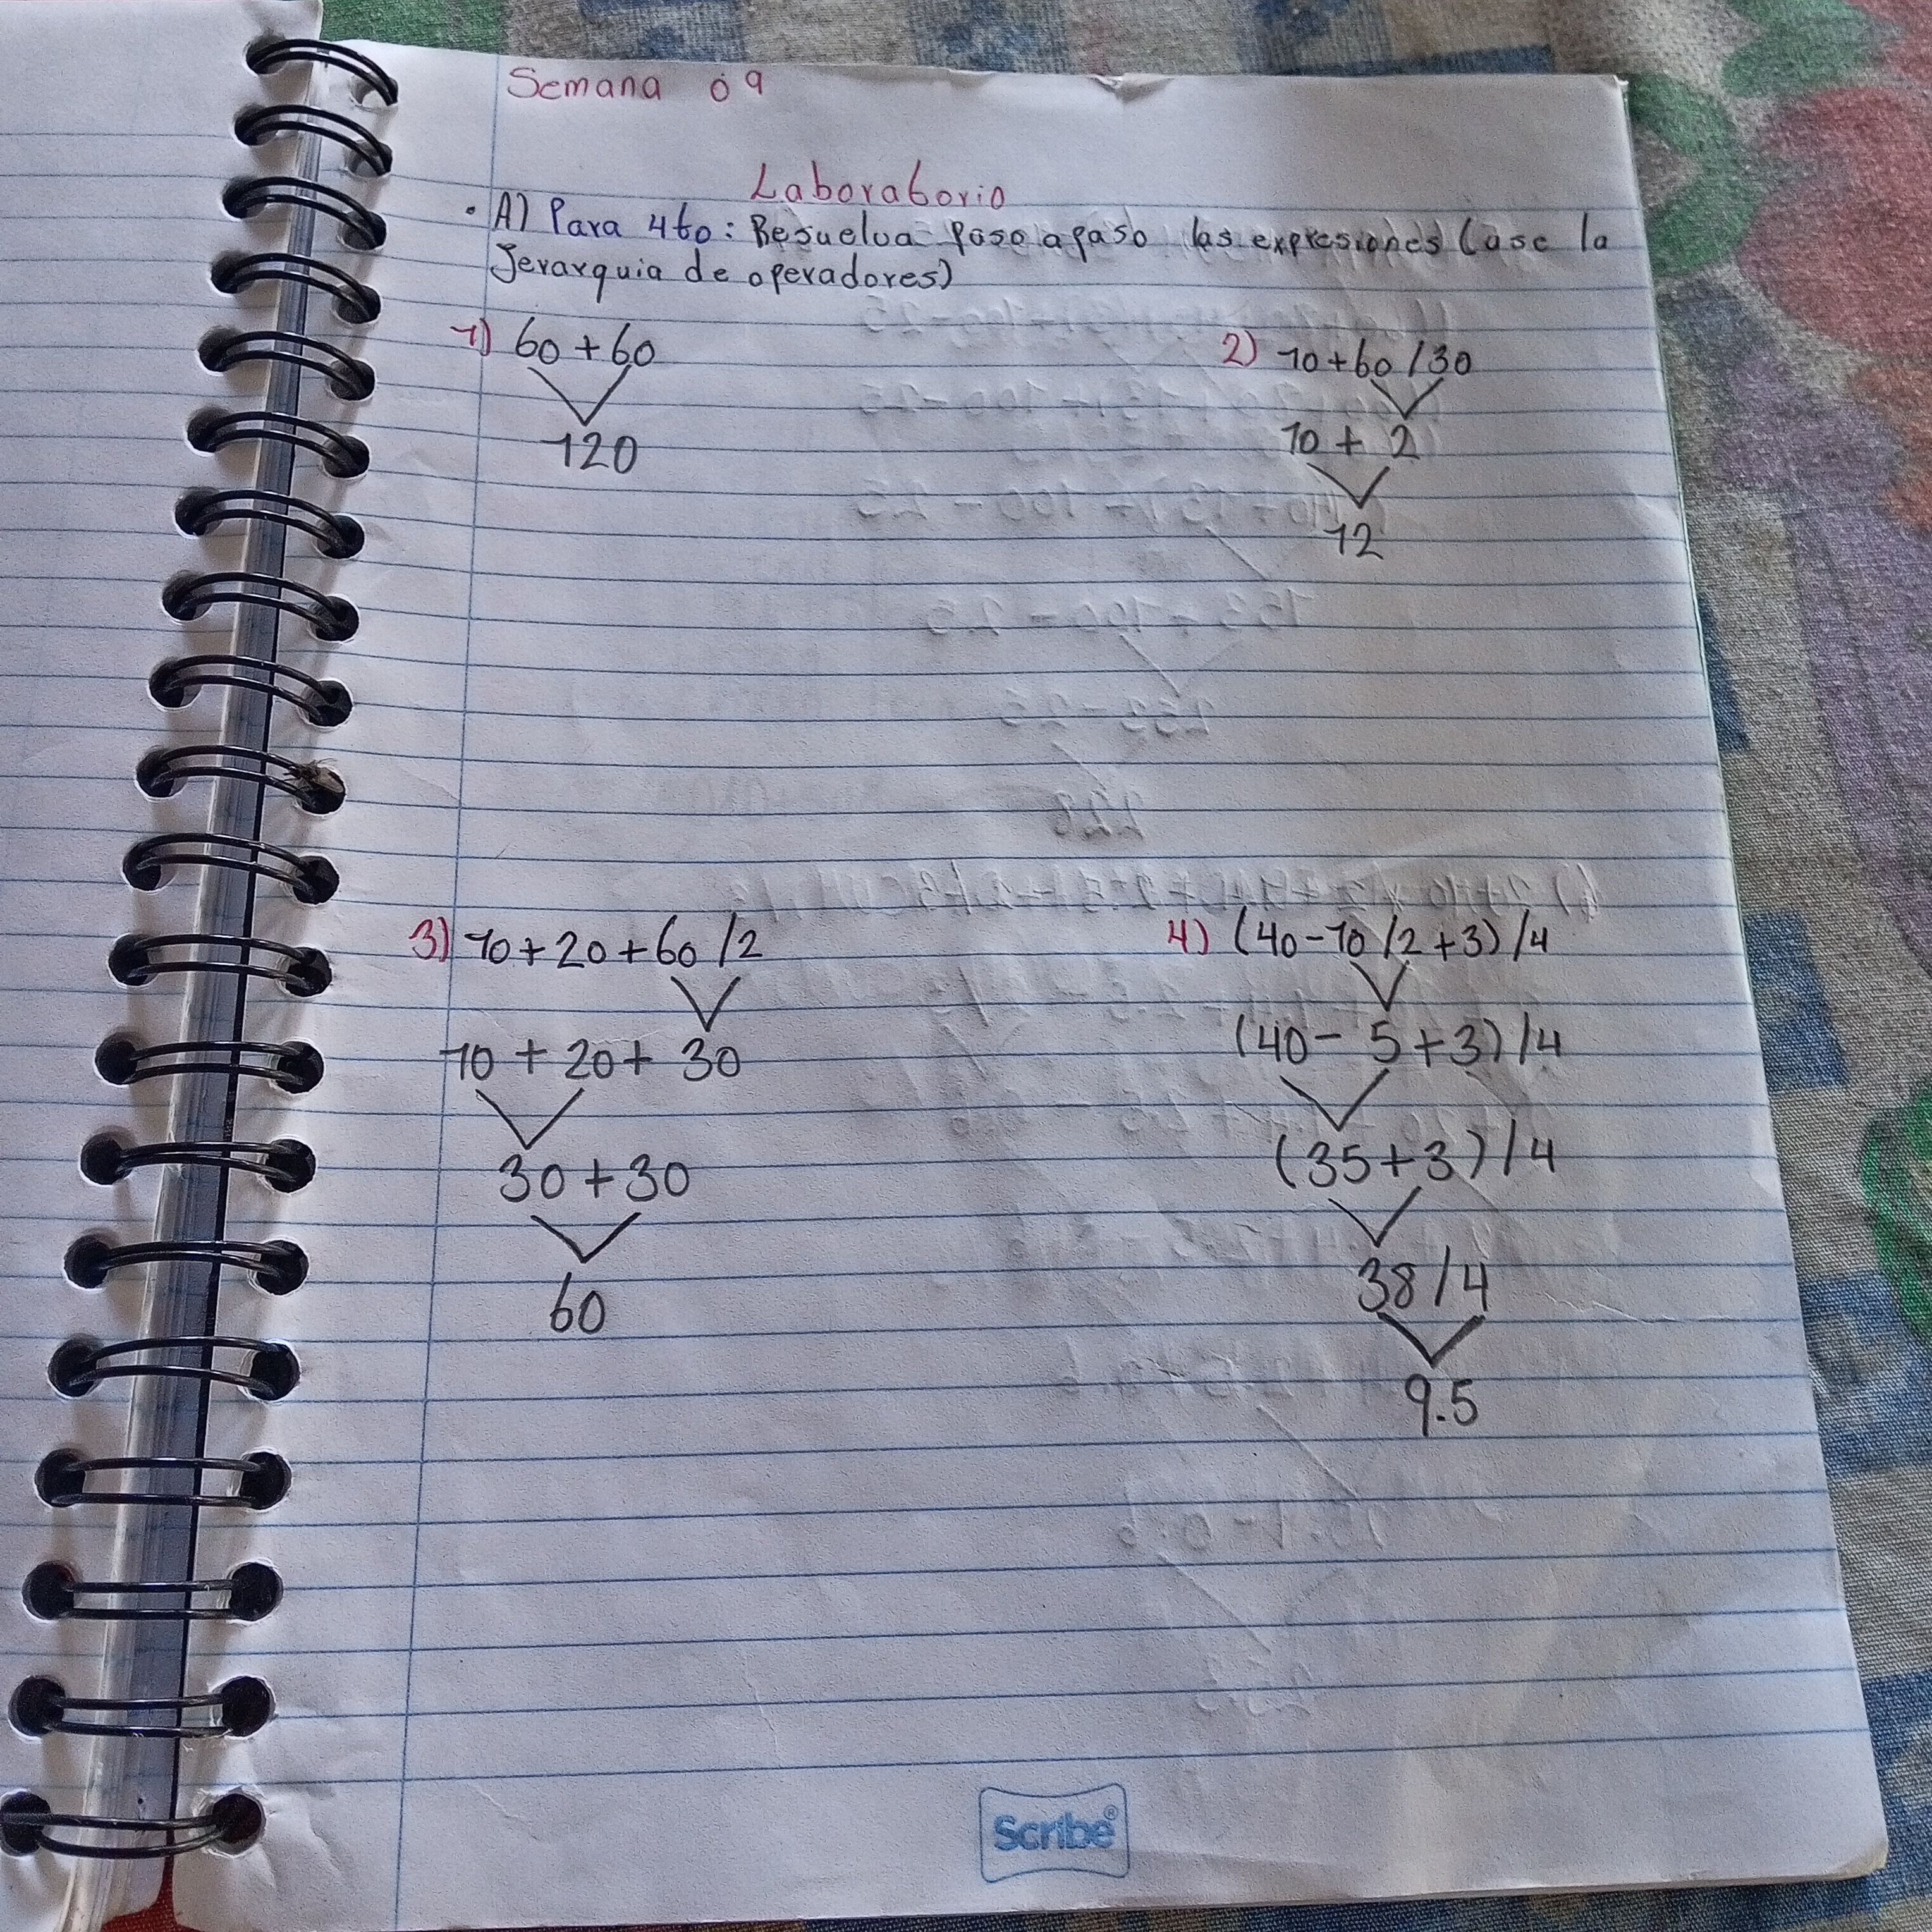 Semana 09
Laboratorio
• A) Para 4to: Resuelva paso a paso las expresiones (use la
Jerarquia de operadores)
1) 60+60
120
2) 10+60/30
10+2
12
3) 10+20+60/2
10+20+30
30+30
60
4) (40-10/2+3)/4
(40-5+3)/4
(35+3)/4
38/4
9.5
Scribe®